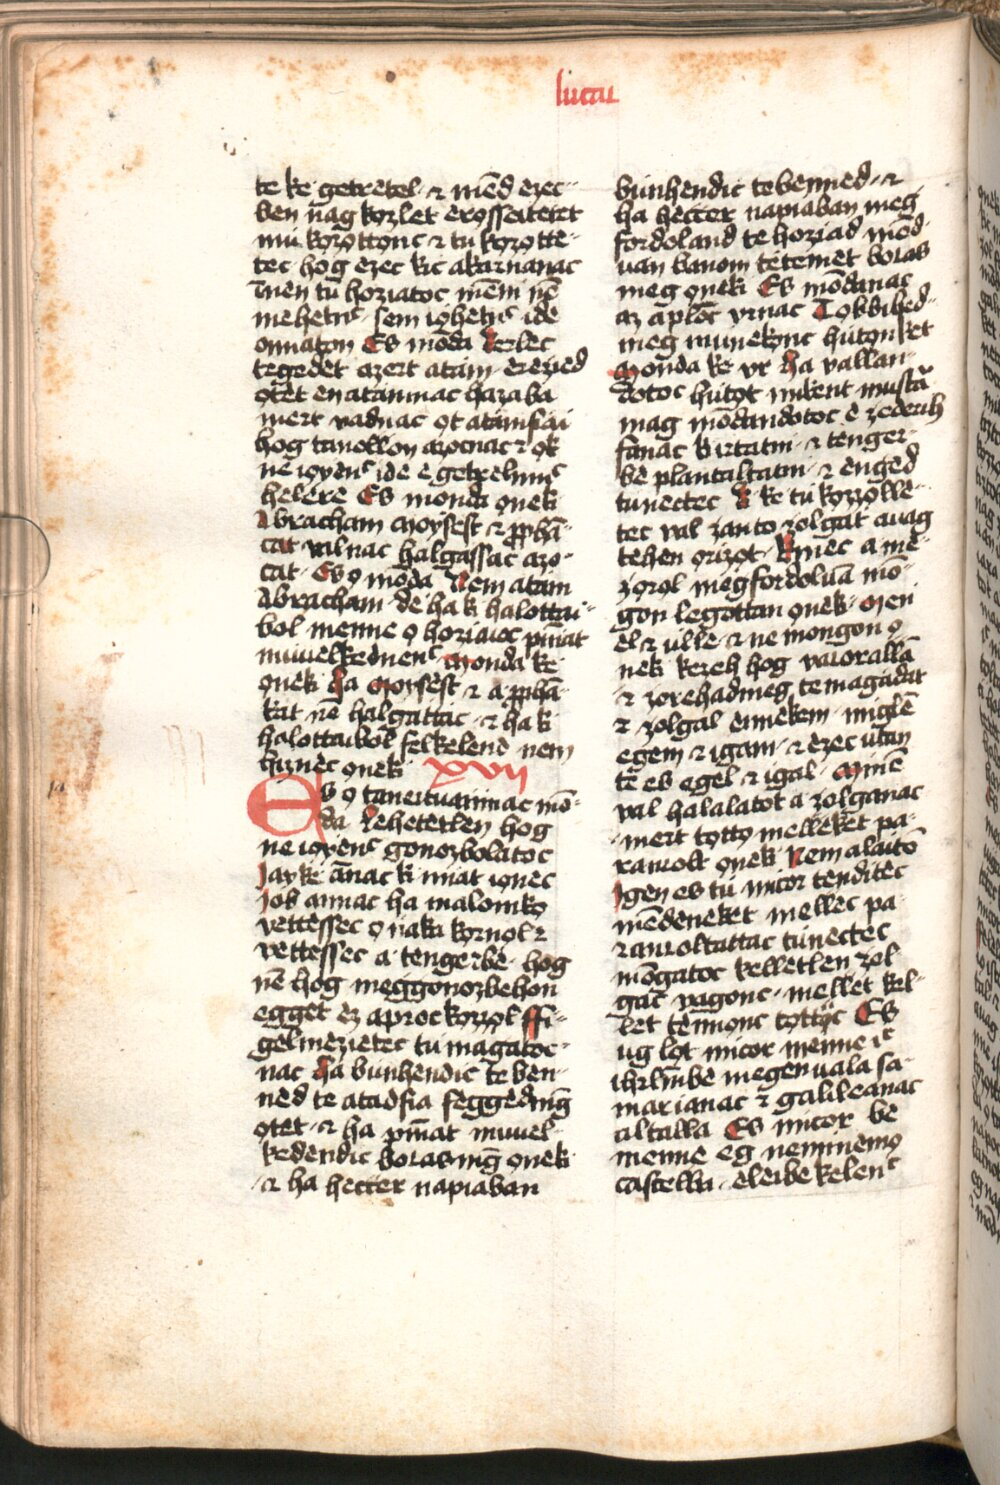 lucau
te ke getretel · ⁊ mēd ezec-
ben nag kozlet erosseitetet
mu kozottonc ⁊ tu kozotte-
tec hog ezec kic akarnanac
innen tu hoziatoc mēni nē
mehetnc̄ · sem iohetnc̄ ide
onnaton Es monda kerlec
tegedet azert atam · ereżied
otet en atamnac hazaba
mert vadnac ot atāmfiai
hog tanollon azocnac ⁊ ok
ne ioyenc̄ ide e getrelmnc̄
helere Es monda onek
Abracham Moysest ⁊ ꝓphā-
cat vałnac halgassac azo-
cat · Es o mōda Nem atam
Abracham · de ha ki halottai-
bol menne o hoziaioc pīnīat
muuelkednenc̄ Monda ke
onek Ha Moysest ⁊ a ꝓphā-
kat nē halgattac · ⁊ ha ki
halottaibol felkelend nem
hiznec onek xvij
Es o taneituaninac mō-
da Lehetetlen hog
ne ioyenc̄ gonozbolatoc
Jay ke ānac ki miat ionec
Job annac ha malomko
vettessec o naka kornol ⁊
vettessec a tengerbē · hog
nē hog meggonozbehon
egget ez aprockozzol ffi-
gelmezietec tu magatoc-
nac Ha bunhendic te ben-
ned te atadfia feggedmḡ
otet · ⁊ ha pīnīat muuel-
kedendic bolasmḡ onek
· ⁊ ha hecter napiaban
bunhendic te benned · ⁊
ha hecter napiaban meg
fordoland te hoziad mōd-
uan banom tetemet bolas
meg oneki Es mōdanac
az aplōc vrnac Tobbihed-
meg munekonc hutonket
Monda ke vr Ha vallan-
dotoc hutot mikent mustā
mag mōdandotoc e zederih
fanac Kirtatm · ⁊ tenger-
be plantaltatm · ⁊ enged
tunectec Ki ke tu kozzolle-
tec val zanto zolgat auag
tehen orizot · Kinec a me-
zorol megfordoluā mō-
gon legottan onek · Men
el ⁊ ulle · ⁊ ne mongon o
nek kezeh hog vaiorallā
⁊ zorehadmeg te magadat
⁊ zolgal ennekem · miglē
egem ⁊ igam · ⁊ ezec utan
te es egel ⁊ igal · Minē
val halalatot a zolganac
· mert totto mellēket pa-
ranīolt onek Nem alaitō
Jgen es tu micor tenditec
mēdeneket mellec pa-
ranīoltattac tunectec
mōgatoc kelletlen zol-
gac vagonc · mellet kel-
let tennonc tottoc Es
ug lot micor menne ic̄
ihrlm̄be megen uala sa-
marianac ⁊ galileanac
altalla Es micor be
menne eg nemīnemo
castellu · eleibe kelenc̄